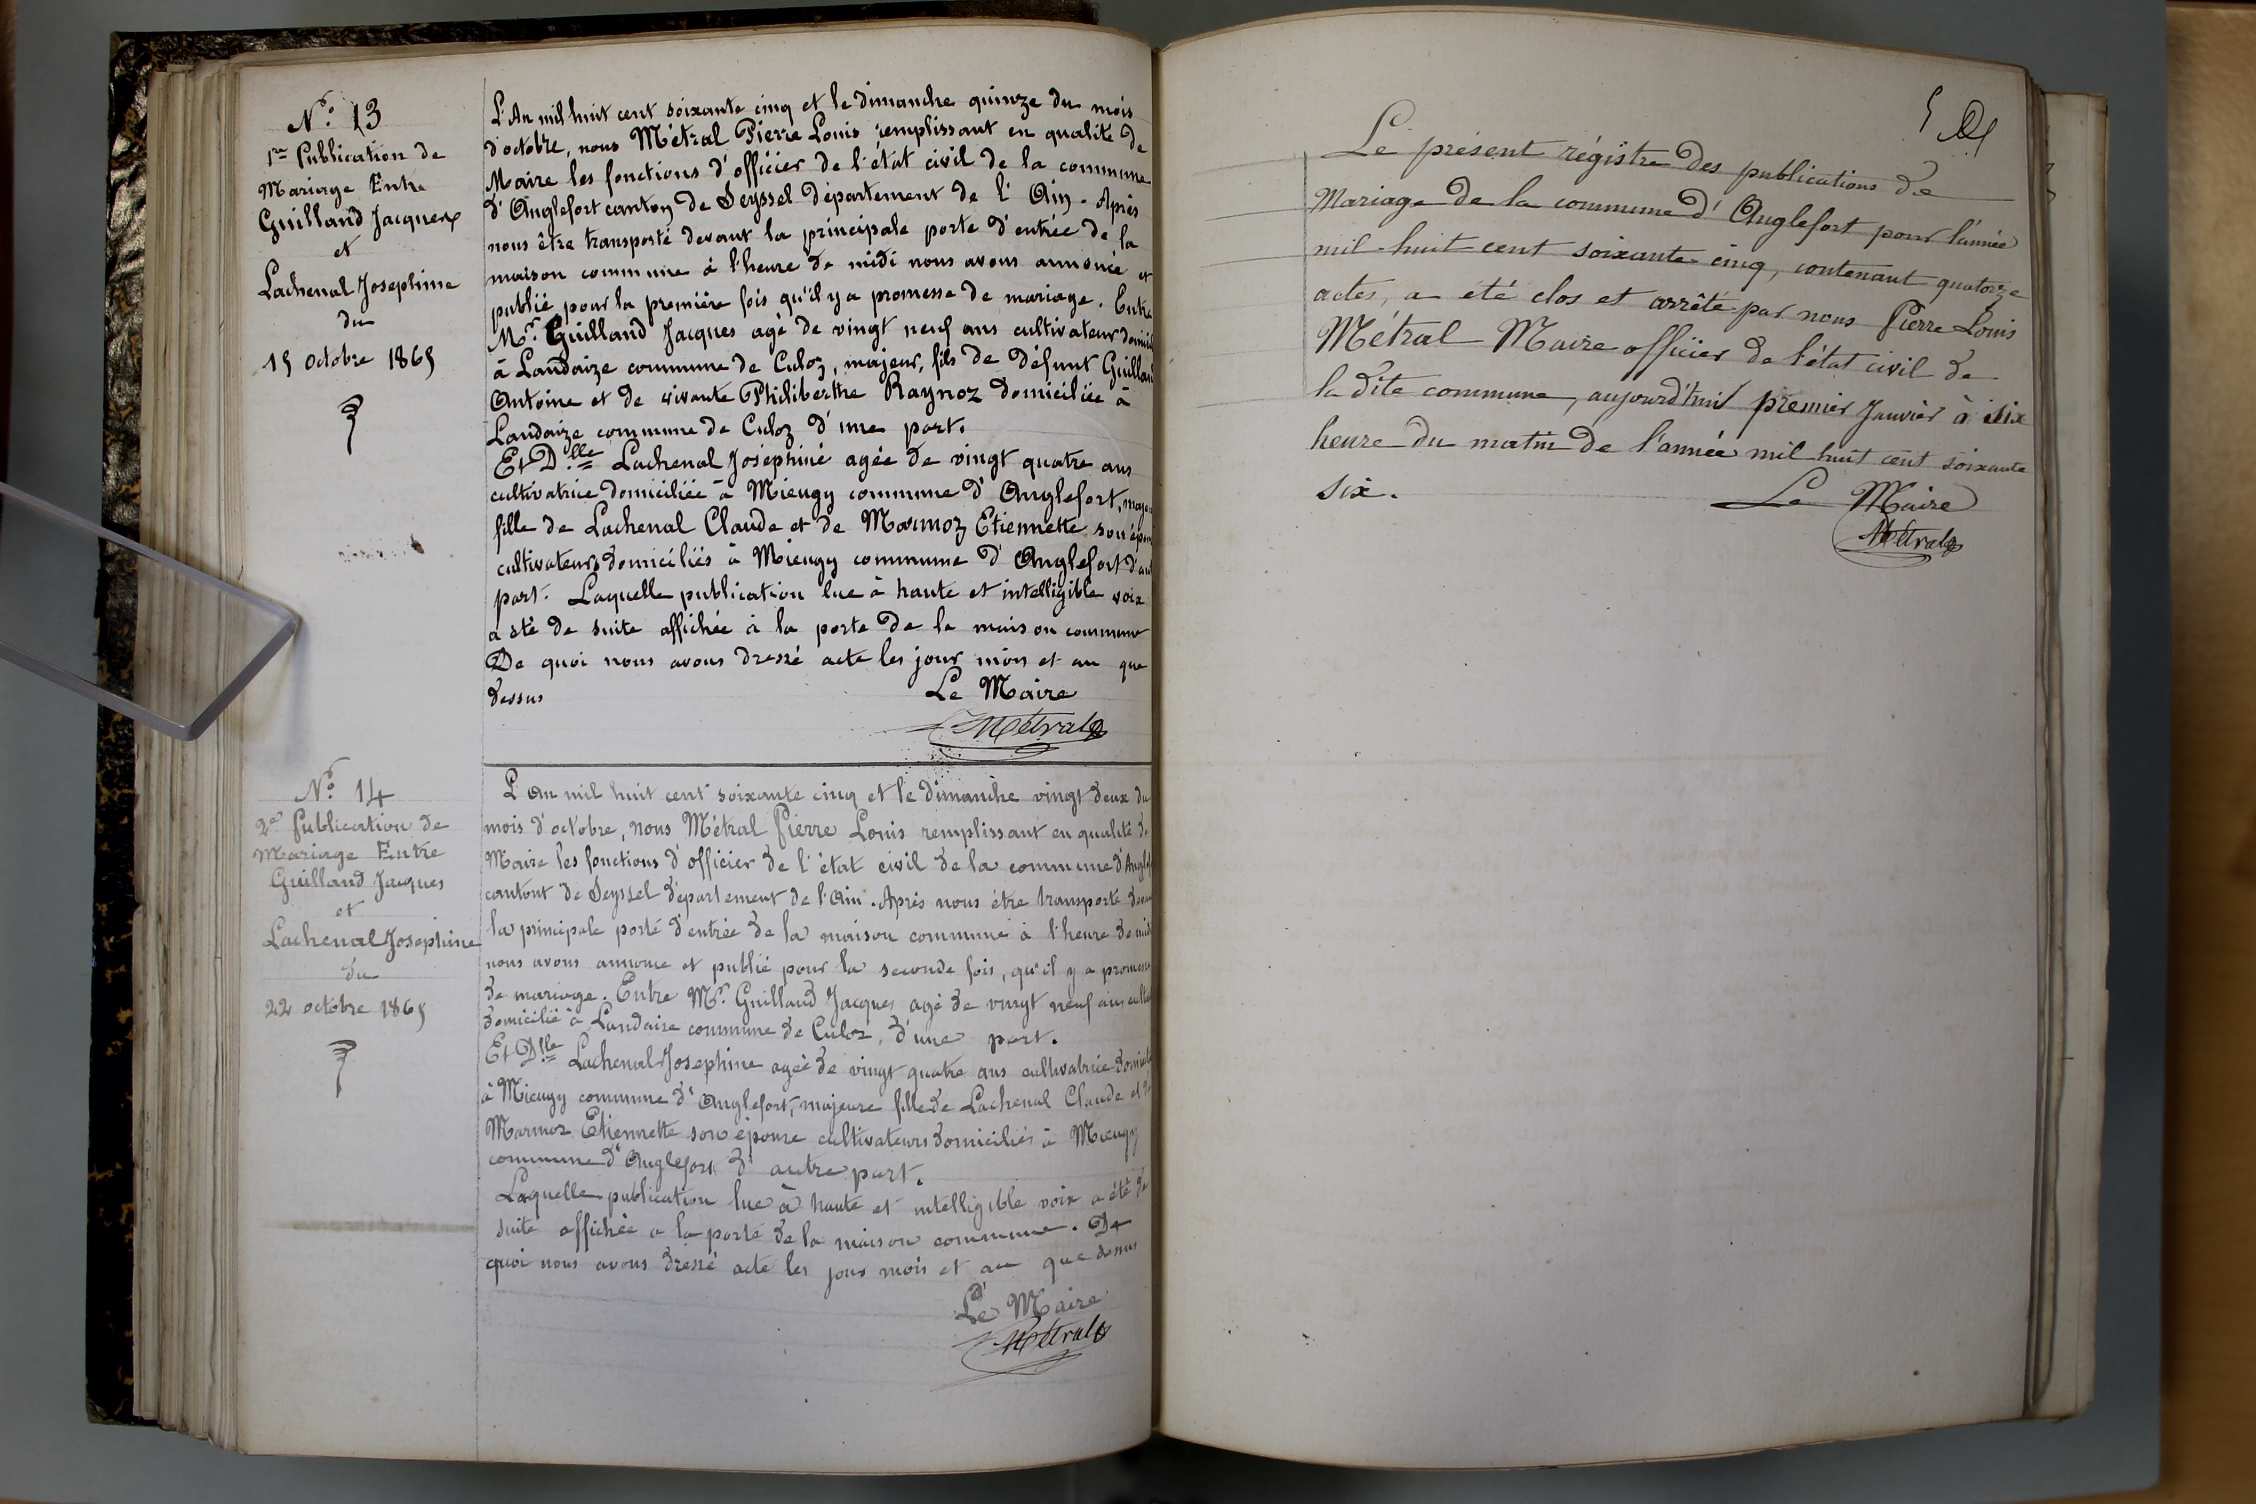 N.o 13
1re Publication de
Mariage Entre
Guilland Jacques
et
Lachenal Josephine
du
15 octobre 1865
L'An mil huit cent soixante cinq et le dimanche quinze du mois
d'octobre, nous Métral Pierre Louis remplissant en qualité de
Maire les fonctions d'officier de l'état civil de la commune
d'Anglefort canton de Seyssel département de l'Ain. Après
nous être transporté devant la principale porte d'entrée de la
maison commune à l'heure de midi nous avons annoncé et
publié pour la première fois qu'il y a promesse de mariage. Entre
Mr. Guilland Jacques agé de vingt neuf ans cultivateur domici
à Landaize commune de Culoz, majeur, fils de défunt Guilland
Antoine et de vivante Philiberthe Raynoz domiciliée à
Landaize commune de Culoz d'une part.
Et Dlle Lachenal Josephine agée de vingt quatre ans
cultivatrice domiciliée à Mieugy commune d'Anglefort, majeu
fille de Lachenal Claude et de Marmoz Etiennette son épou
cultivateurs domiciliés à Mieugy commune d'Anglefort d'aut
part. Laquelle publication lue à haute et intelligible voix
a été de suite affichée à la porte de la maison commune
De quoi nous avons dressé acte les jour mois et an que
dessus
Le Maire
Métral
N.o 14
2e Publication de
Mariage Entre
Guilland Jacques
et
Lachenal Josephine
du
22 octobre 1865
L'An mil huit cent soixante cinq et le dimanche vingt deux du
mois d'octobre, nous Métral Pierre Louis remplissant en qualité de
Maire les fonctions d'officier de l'état civil de la commune d'Anglef
cantont de Seyssel département de l'Ain. Après nous être transporté devan
la principale porte d'entrée de la maison commune à l'heure de midi
nous avons annonce et publié pour la seconde fois, qu'il y a promesse
de mariage. Entre Mr. Guilland Jacques agé de vingt neuf ans cultiv
domicilié à Landaize commune de Culoz, d'une part.
Et Dlle Lachenal Josephine agée de vingt quatre ans cultivatrice domicilé
à Mieugy commune d'Anglefort, majeure fille de Lachenal Claude et de
Marmoz Etiennette son épouse cultivateurs domiciliés à Mieugy
commune d'Anglefort d'autre part.
Laquelle publication lue à haute et intelligible voix a été de
suite affichée a la porte de la maison commune. De
quoi nous avons dressé acte les jour mois et an que dessus
Le Maire
Métral
5
Le présent régistre des publications de
Mariage de la commune d'Anglefort pour l'année
mil huit cent soixante cinq, contenant quatorze
actes, a été clos et arrêté par nous Pierre Louis
Métral Maire officier de l'état civil de
la dite commune, aujourd'hui premier Janvier à six
heure du matin de l'année mil huit cent soixante
six.
Le Maire
Métral